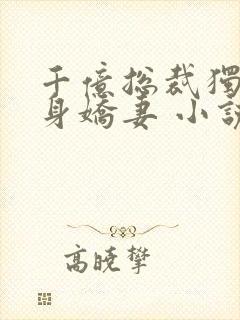 千億總裁獨
身嬌妻 小說
高曉攀